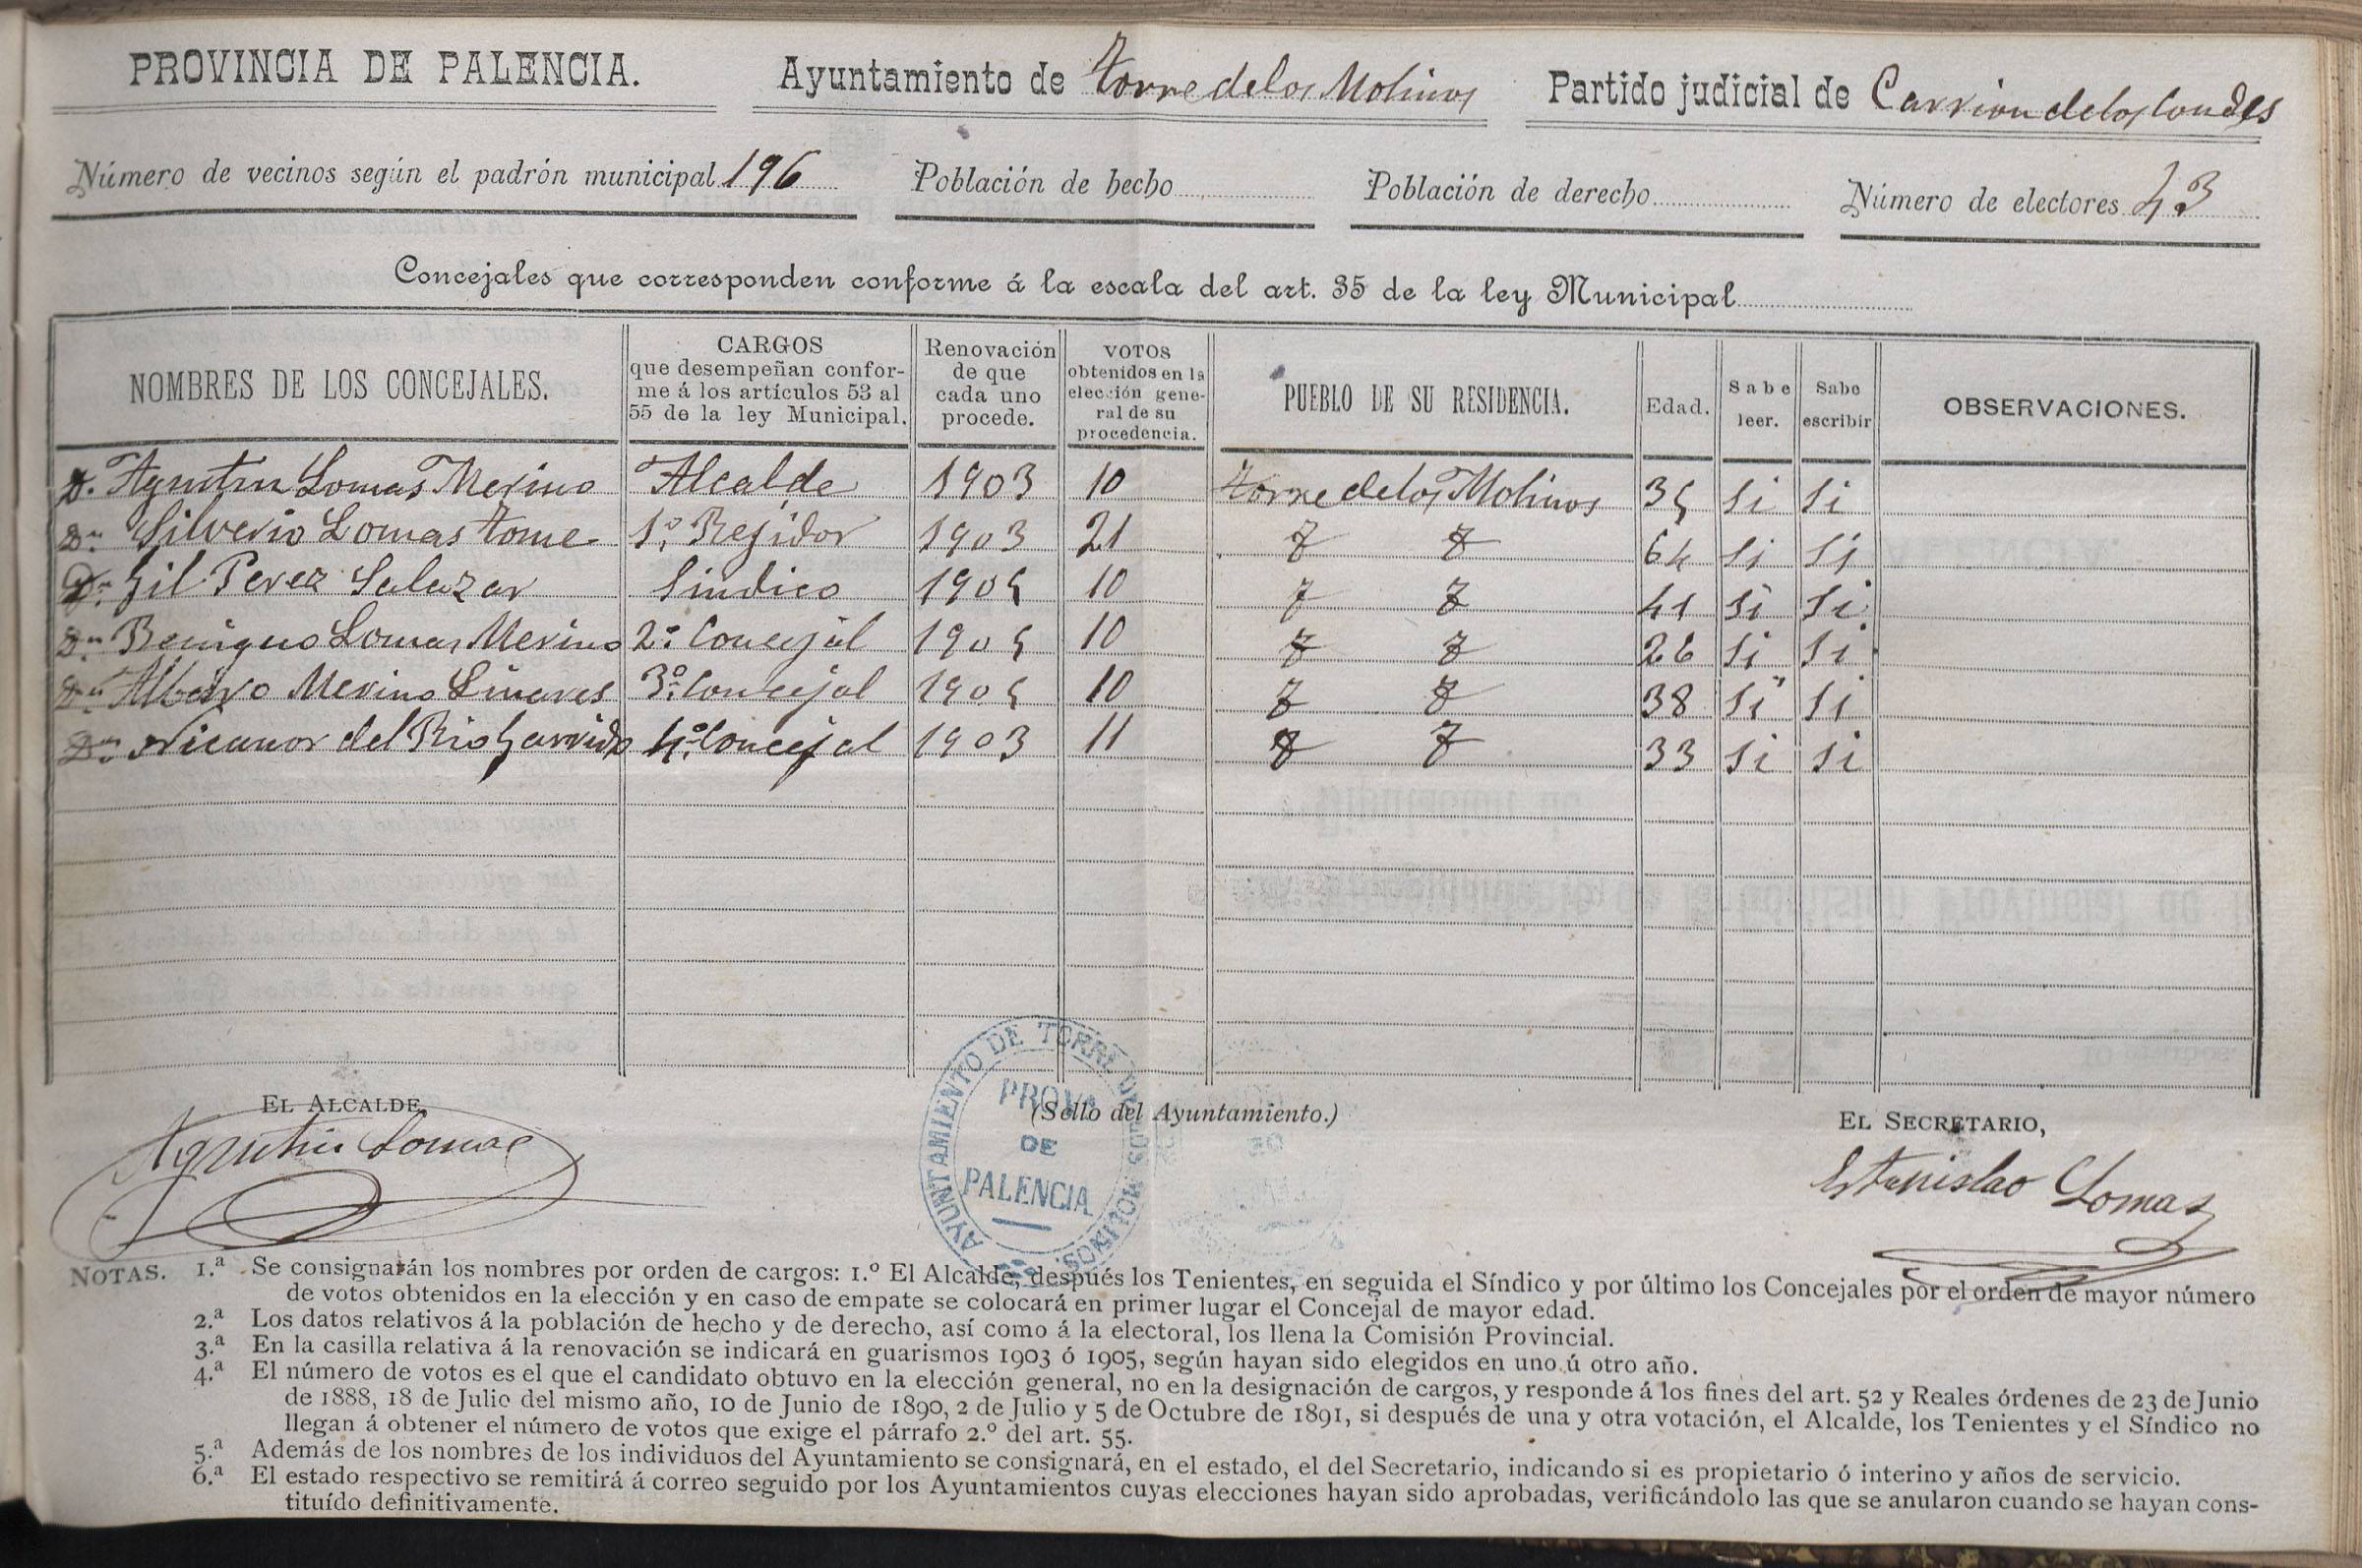 PROVINCIA DE PALENCIA. Ayuntamiento de Torre de los Molinos Partido judicial de Carrion de los Condes
Número de vecinos según el padrón municipal 196 Población de hecho Población de derecho Número de electores 43
Concejales que corresponden conforme á la escala del art. 35 de la ley Municipal
NOMBRES DE LOS CONCEJALES. CARGOS que desempeñan conforme á los artículos 53 al 55 de la ley Municipal. Renovación de que cada uno procede. VOTOS obtenidos en la elección general de su procedencia. PUEBLO DE SU RESIDENCIA. Edad. Sabe leer. Sabe escribir OBSERVACIONES.
D. Agustin Lomas Merino Alcalde 1903 10 Torre de los Molinos 35 Si Si
Dn Silverio Lomas Tome 1º Regidor 1903 21 64 Si Si
Dn Gil Perez Salazar Sindico 1905 10 41 Si Si
Dn Benigno Lomas Merino 2º Concejal 1905 10 26 Si Si
Dn Albaro Merino Linares 3º Concejal 1905 10 38 Si Si
Dn Nicanor del Rio Garrido 4º Concejal 1903 11 33 Si Si
EL ALCALDE, (Sello del Ayuntamiento.) EL SECRETARIO,
Agustin Lomas
Estanislao Lomas
AYUNTAMIENTO DE TORRE DE LOS MOLINOS
PROVA
DE
PALENCIA
NOTAS. 1.ª Se consignarán los nombres por orden de cargos: 1.º El Alcalde, después los Tenientes, en seguida el Síndico y por último los Concejales por el orden de mayor número
de votos obtenidos en la elección y en caso de empate se colocará en primer lugar el Concejal de mayor edad.
2.ª Los datos relativos á la población de hecho y de derecho, así como á la electoral, los llena la Comisión Provincial.
3.ª En la casilla relativa á la renovación se indicará en guarismos 1903 ó 1905, según hayan sido elegidos en uno ú otro año.
4.ª El número de votos es el que el candidato obtuvo en la elección general, no en la designación de cargos, y responde á los fines del art. 52 y Reales órdenes de 23 de Junio
de 1888, 18 de Julio del mismo año, 10 de Junio de 1890, 2 de Julio y 5 de Octubre de 1891, si después de una y otra votación, el Alcalde, los Tenientes y el Síndico no
llegan á obtener el número de votos que exige el párrafo 2.º del art. 55.
5.ª Además de los nombres de los individuos del Ayuntamiento se consignará, en el estado, el del Secretario, indicando si es propietario ó interino y años de servicio.
6.ª El estado respectivo se remitirá á correo seguido por los Ayuntamientos cuyas elecciones hayan sido aprobadas, verificándolo las que se anularon cuando se hayan cons-
tituído definitivamente.